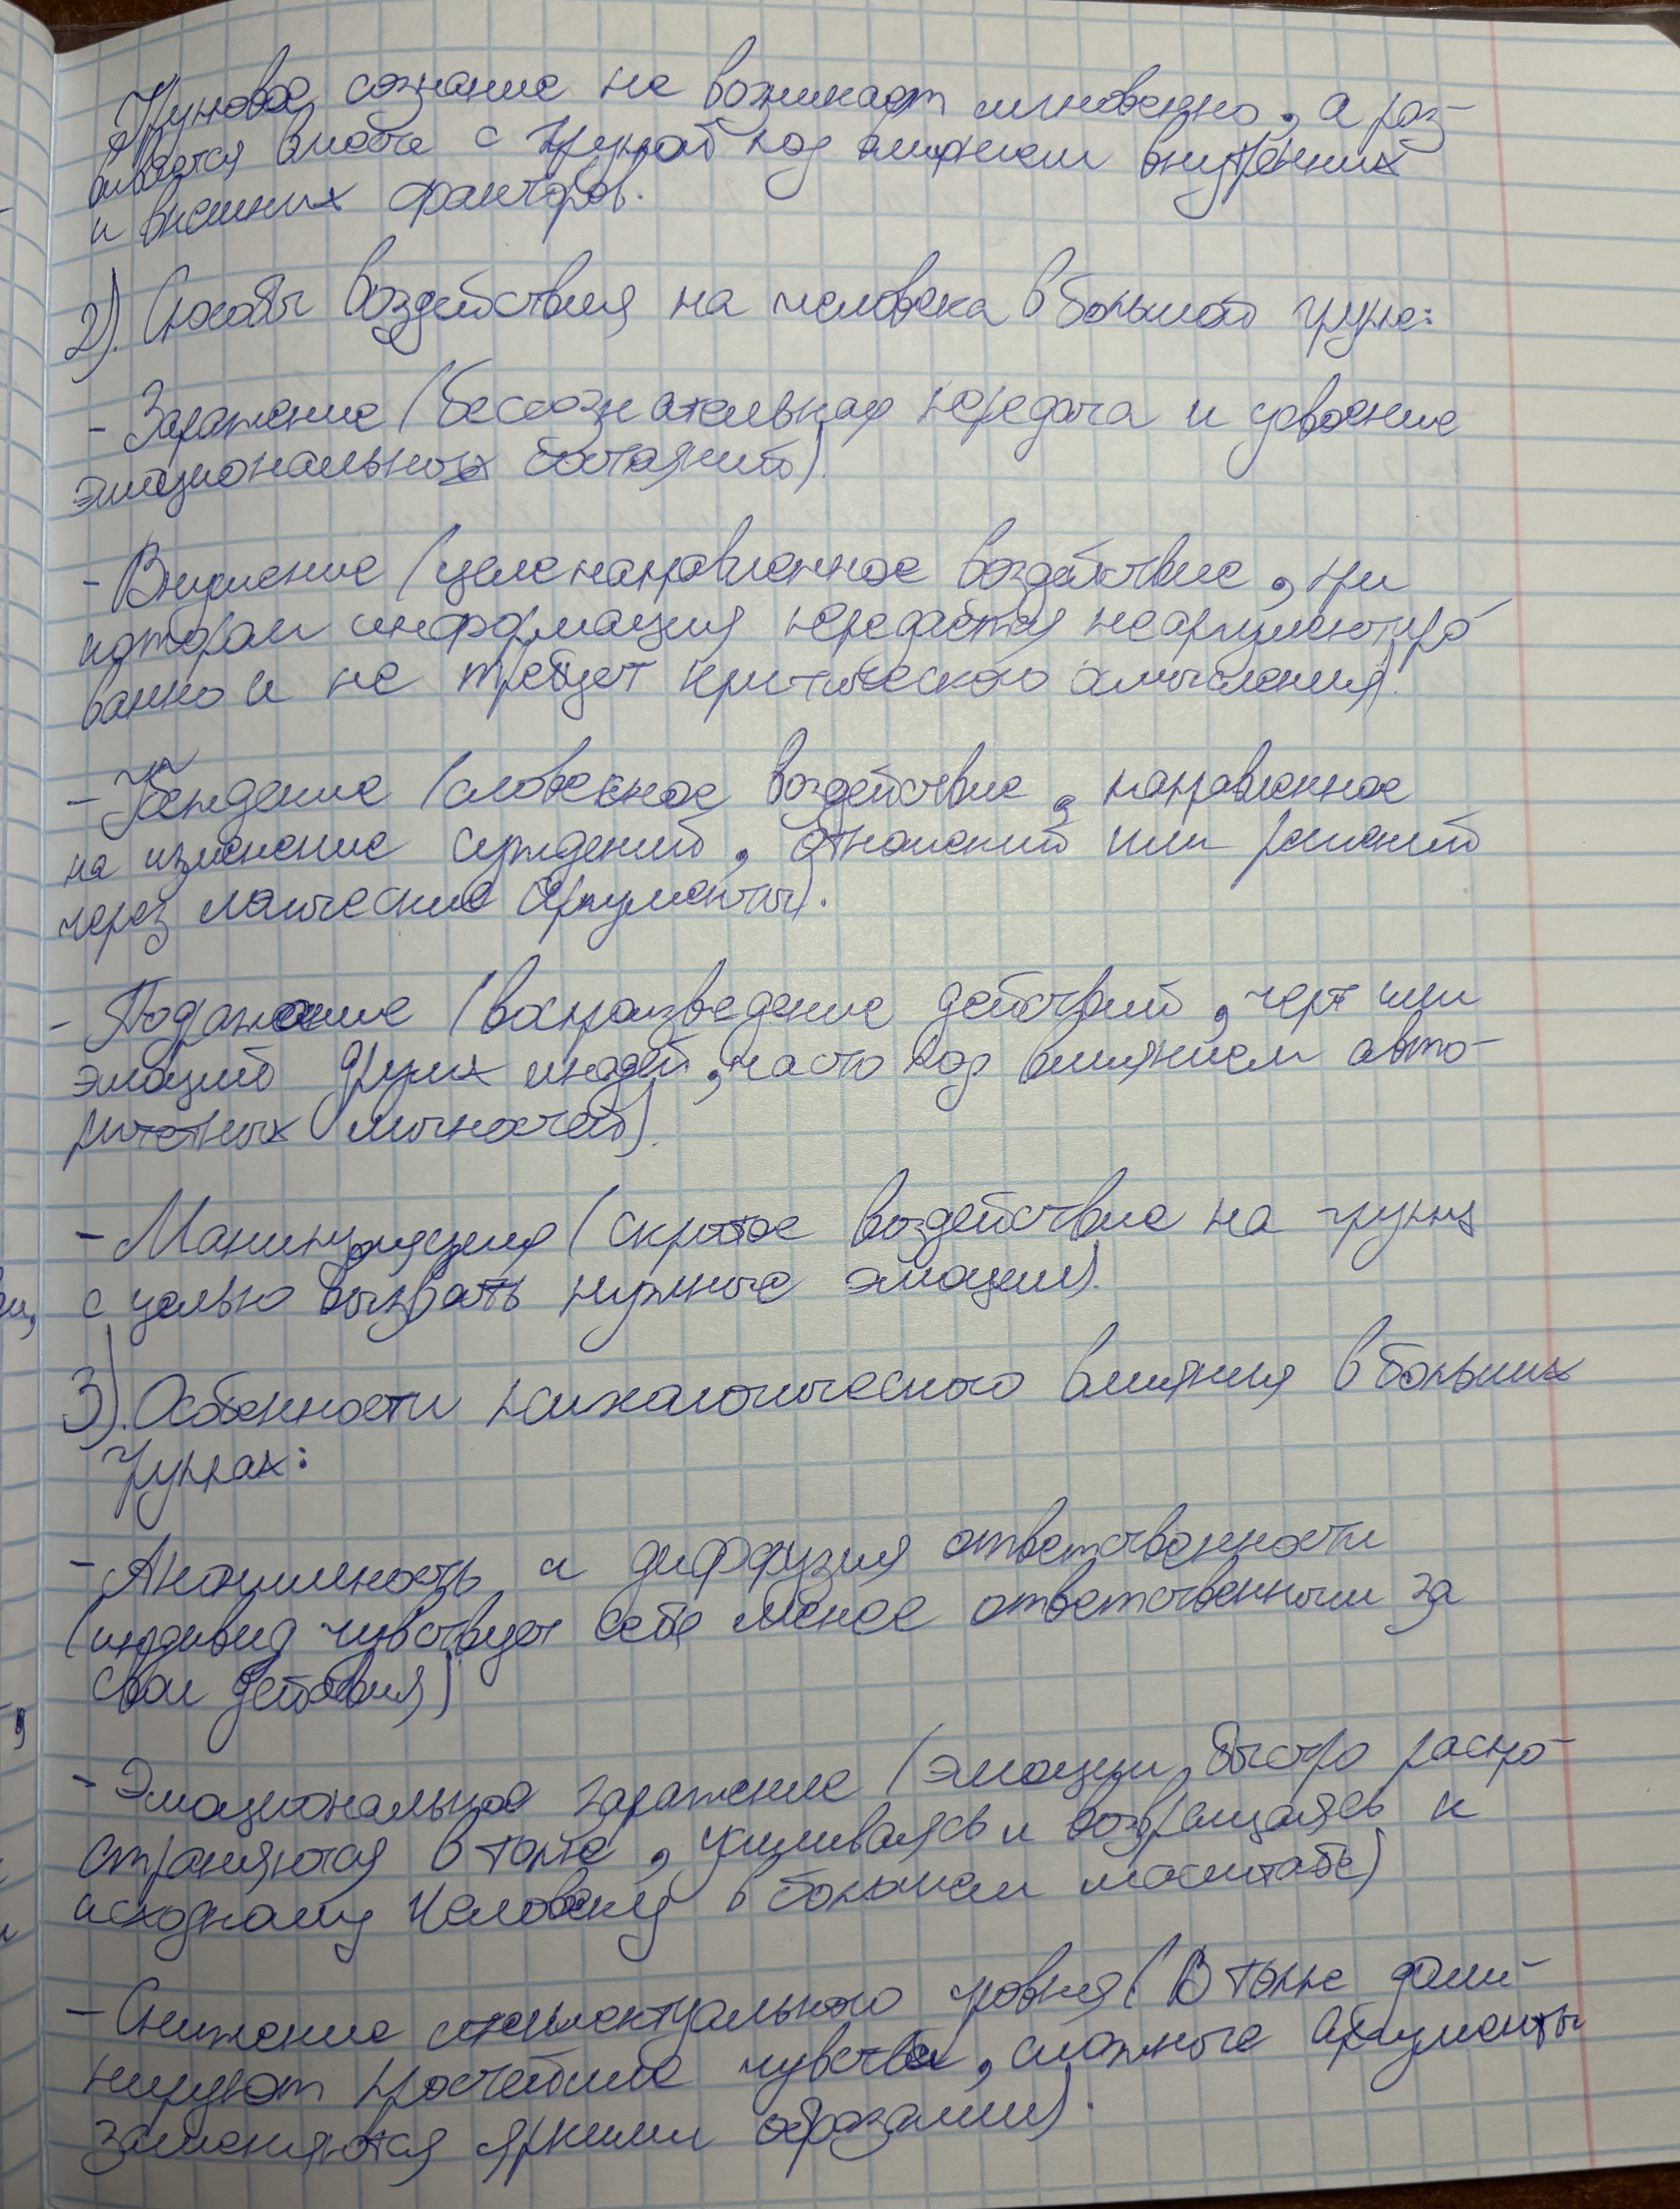 Групповое сознание не возникает мгновенно, а раз-
вивается вместе с группой под влиянием внутренних
и внешних факторов.
2). Способы воздействия на человека в большой группе:
- Заражение (бессознательная передача и усвоение
эмоциональных состояний).
- Внушение (целенаправленное воздействие, при
котором информация передаётся неаргументиро
ванно и не требует критического осмысления).
- Убеждение (словесное воздействие, направленное
на изменение суждений, отношений или решений
через логические аргументы).
- Подражание (воспроизведение действий, черт или
эмоций других людей, часто под влиянием авто-
ритетных личностей).
- Манипуляция (скрытое воздействие на группу
с целью вызвать нужные эмоции).
3). Особенности психологического влияния в больших
группах:
- Анонимность и диффузия ответственности
(индивид чувствует себя менее ответственным за
свои действия)
- Эмоциональное заражение (эмоции быстро распро-
страняются в толпе, усиливаясь и возвращаясь к
исходному человеку в большем масштабе)
- Снижение интеллектуального уровня (В толпе доми-
нируют простейшие чувства, сложные аргументы
заменяются яркими образами).